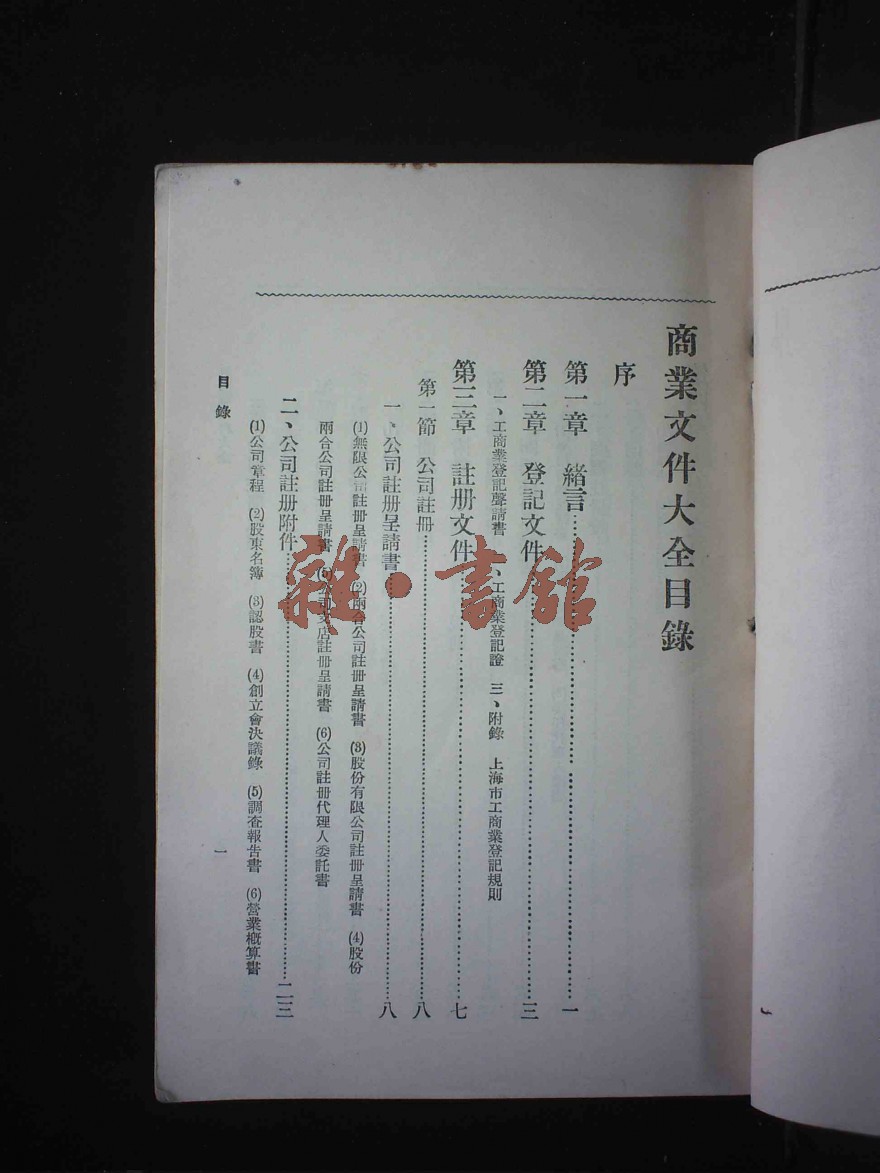 商業文件大全目錄
序
第一章　緒言…………一
第二章　登記文件…………三
一、工商業登記聲請書　二、工商業登記證　三、附錄　上海市工商業登記規則
第三章　註册文件…………七
第一節　公司註册…………八
一、公司註册呈請書…………八
(1)無限公司註册呈請書　(2)兩合公司註册呈請書　(3)股份有限公司註册呈請書　(4)股份
兩合公司註册呈請書　(5)公司支店註册呈請書　(6)公司註册代理人委託書
二、公司註册附件…………二三
(1)公司章程　(2)股東名簿　(3)認股書　(4)創立會決議錄　(5)調查報告書　(6)營業概算書
目錄
一
雜·書館